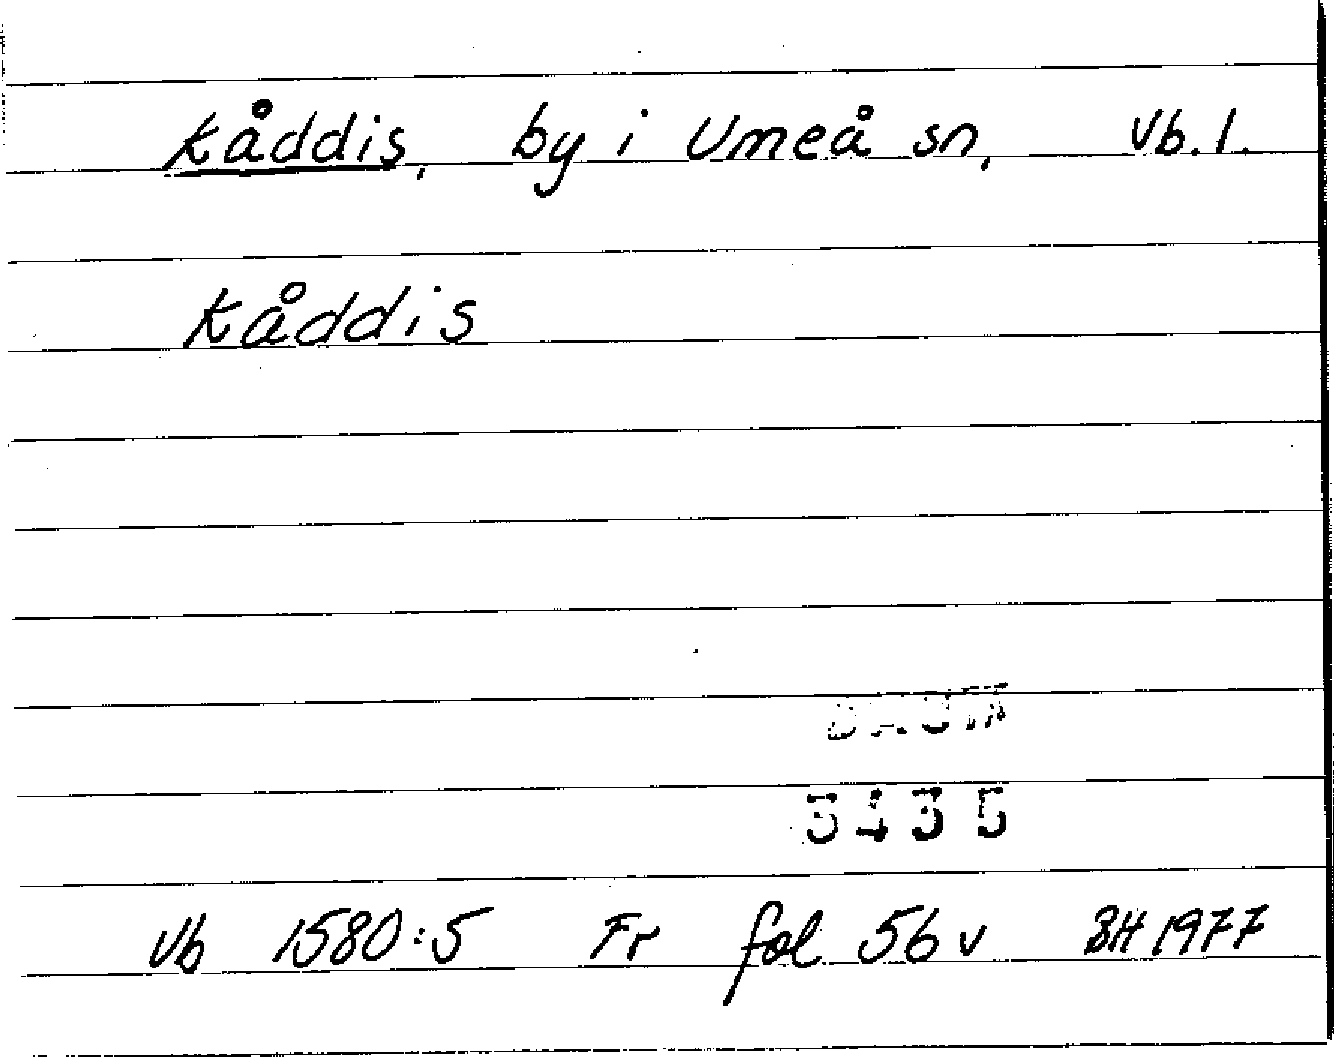 Kåddis, by i Umeå sn, Vb.l.
Kåddis
DAUM
3435
Vb 1580:5 Fr fol 56 v BH 1977